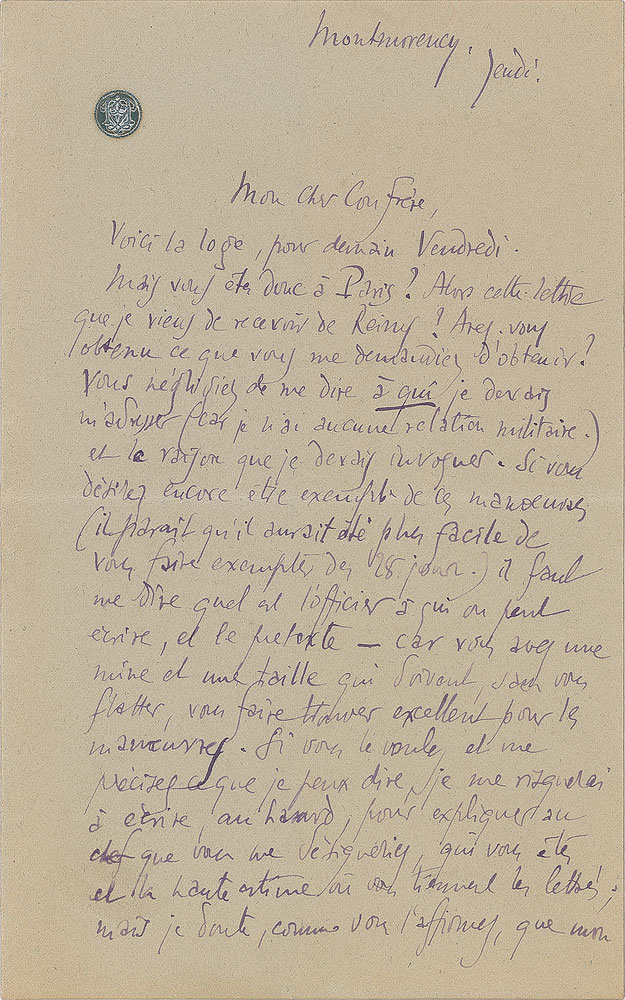 Montmorency.
Jeudi.
Mon cher Confrère,
Voici la loge, pour demain Vendredi.
Mais vous êtes donc à Paris ? Alors cette lettre
que je viens de recevoir de Reims ? Avez-vous
obtenu ce que vous me demandiez d'obtenir ?
Vous négligiez de me dire à qui je devais
m'adresser (car je n'ai aucune relation militaire.)
et la raison que je devais invoquer. Si vous
désirez encore être exempté de ces manoeuvres
(il paraît qu'il aurait été plus facile de
vous faire exempter des 28 jours.) il faut
me dire quel est l'officier à qui on peut
écrire, et le prétexte — car vous avez une
mine et une taille qui doivent, sans vous
flatter, vous faire trouver excellent pour les
manœuvres. Si vous le voulez et me
précisez ce que je peux dire, je me risquerai
à écrire, au hasard, pour expliquer au
chef que vous me désigneriez, qui vous êtes
et la haute estime où vous tiennent les lettrés ;
mais je doute, comme vous l'affirmez, que mon